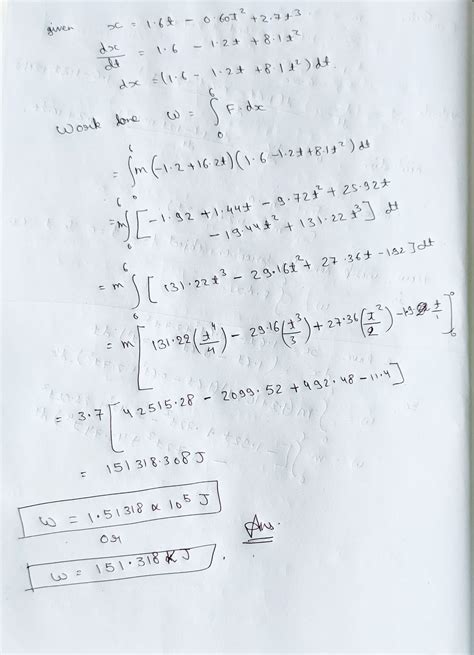 given x = 1.6t - 0.60t² + 2.7t³
dx/dt = 1.6 - 1.2t + 8.1t²
dx = (1.6 - 1.2t + 8.1t²) dt
Work done, W = ∫₀⁶ F.dx
= ∫₀⁶ m(-1.2 + 16.2t)(1.6 - 1.2t + 8.1t²) dt
= m∫₀⁶ [-1.92 + 1.44t - 9.72t² + 25.92t
- 19.44t² + 131.22t³] dt
= m ∫₀⁶ [131.22t³ - 29.16t² + 27.36t - 1.92] dt
= m [131.22(t⁴/4) - 29.16(t³/3) + 27.36(t²/2) - 1.92 t/1]₀⁶
= 3.7 [42515.28 - 2099.52 + 492.48 - 11.4]
= 151318.308 J
W = 1.51318 × 10⁵ J
or
W = 151.318 KJ . Ans.